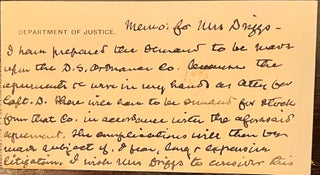 Memo: for Mrs Driggs -
DEPARTMENT OF JUSTICE.
I have prepared the demand to be made
upon the D.S. Ordnance Co. because the
agreements were in my hands as atty for
Capt. D. There will have to be demand for stock
from that Co. in accordance with the aforesaid
agreement. The complications will then be
made subject of, I fear, long & expensive
litigation. I wish Mrs Driggs to consider this